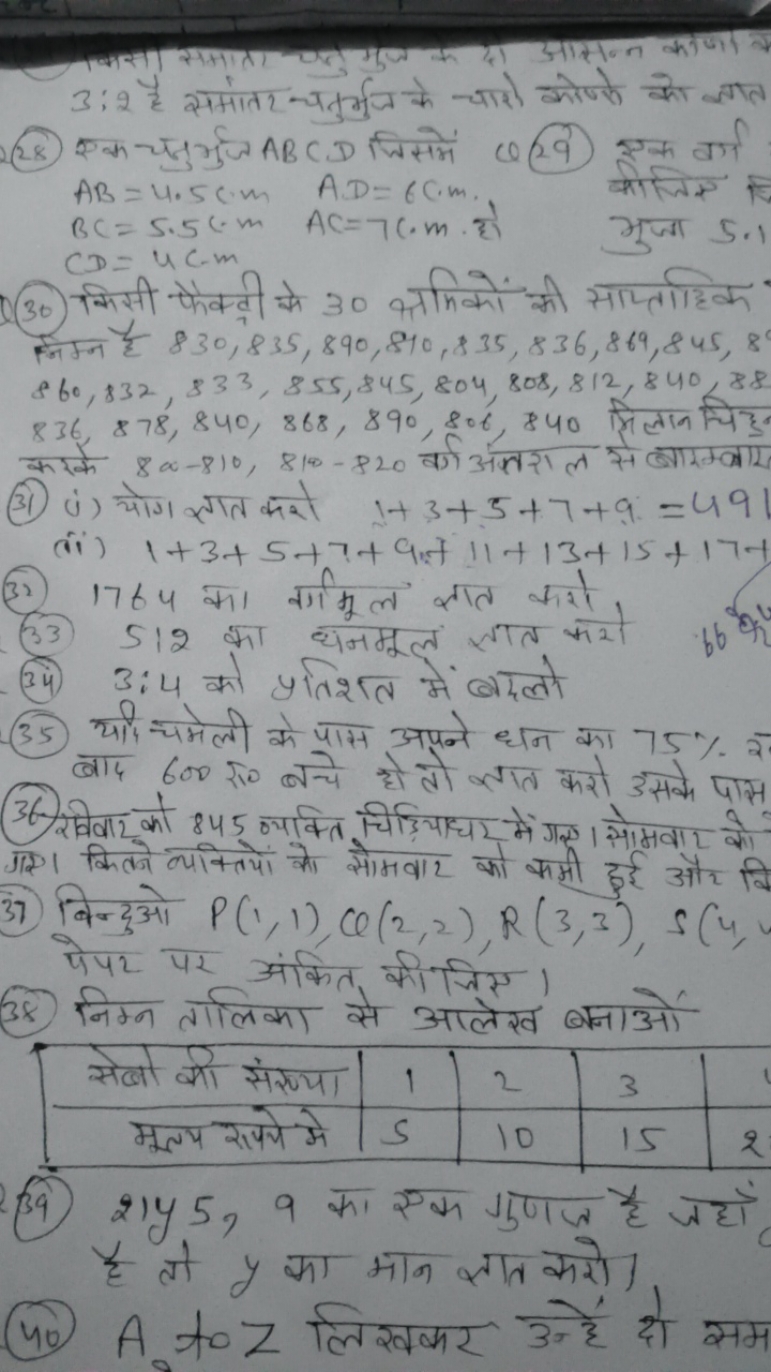 किसी समांतर चतुर्भुज के दो आसन्न कोणों
3:2 है समांतर चतुर्भुज के चारो कोणो को ज्ञात
(28) एक चतुर्भुज ABCD जिसमें Q (29) एक वर्ग
AB = 4.5 C.m AD = 6 C.m. कीजिए
BC = 5.5 C.m AC = 7 C.m. हो भुजा 5.1
CD = 4 C.m
(30) किसी फैक्ट्री के 30 श्रमिकों की साप्ताहिक
निम्न है 830, 835, 890, 810, 835, 836, 869, 845,
860, 832, 833, 855, 845, 804, 808, 812, 840, 88
836, 878, 840, 868, 890, 806, 840 मिलान चिह्न
करके 800-810, 810-820 वर्ग अंतराल से बारम्बार
(31) (i) योग ज्ञात करो 1+3+5+7+9 =
(ii) 1+3+5+7+9+11+13+15+17+
(32) 1764 का वर्गमूल ज्ञात करो
(33) 512 का घनमूल ज्ञात करो
(34) 3:4 को प्रतिशत में बदलो
(35) यदि चमेली के पास अपने धन का 75%
बाद 600 रु० बचे हो तो ज्ञात करो उसके पास
(36) रविवार को 845 व्यक्ति चिड़ियाघर में गए। सोमवार को
गए। कितने व्यक्तियों की सोमवार को कमी हुई और
37 बिन्दुओ P(1,1), Q(2,2), R(3,3), S(4,
पेपर पर अंकित कीजिए।
(38) निम्न तालिका से आलेख बनाओं
सेबों की संख्या 1 2 3
मूल्य रुपये मे 5 10 15 2
(39) 21y5, 9 का एक गुणज है जहाँ
है तो y का मान ज्ञात करो।
(40) A to Z लिखकर उन्हें दो सम